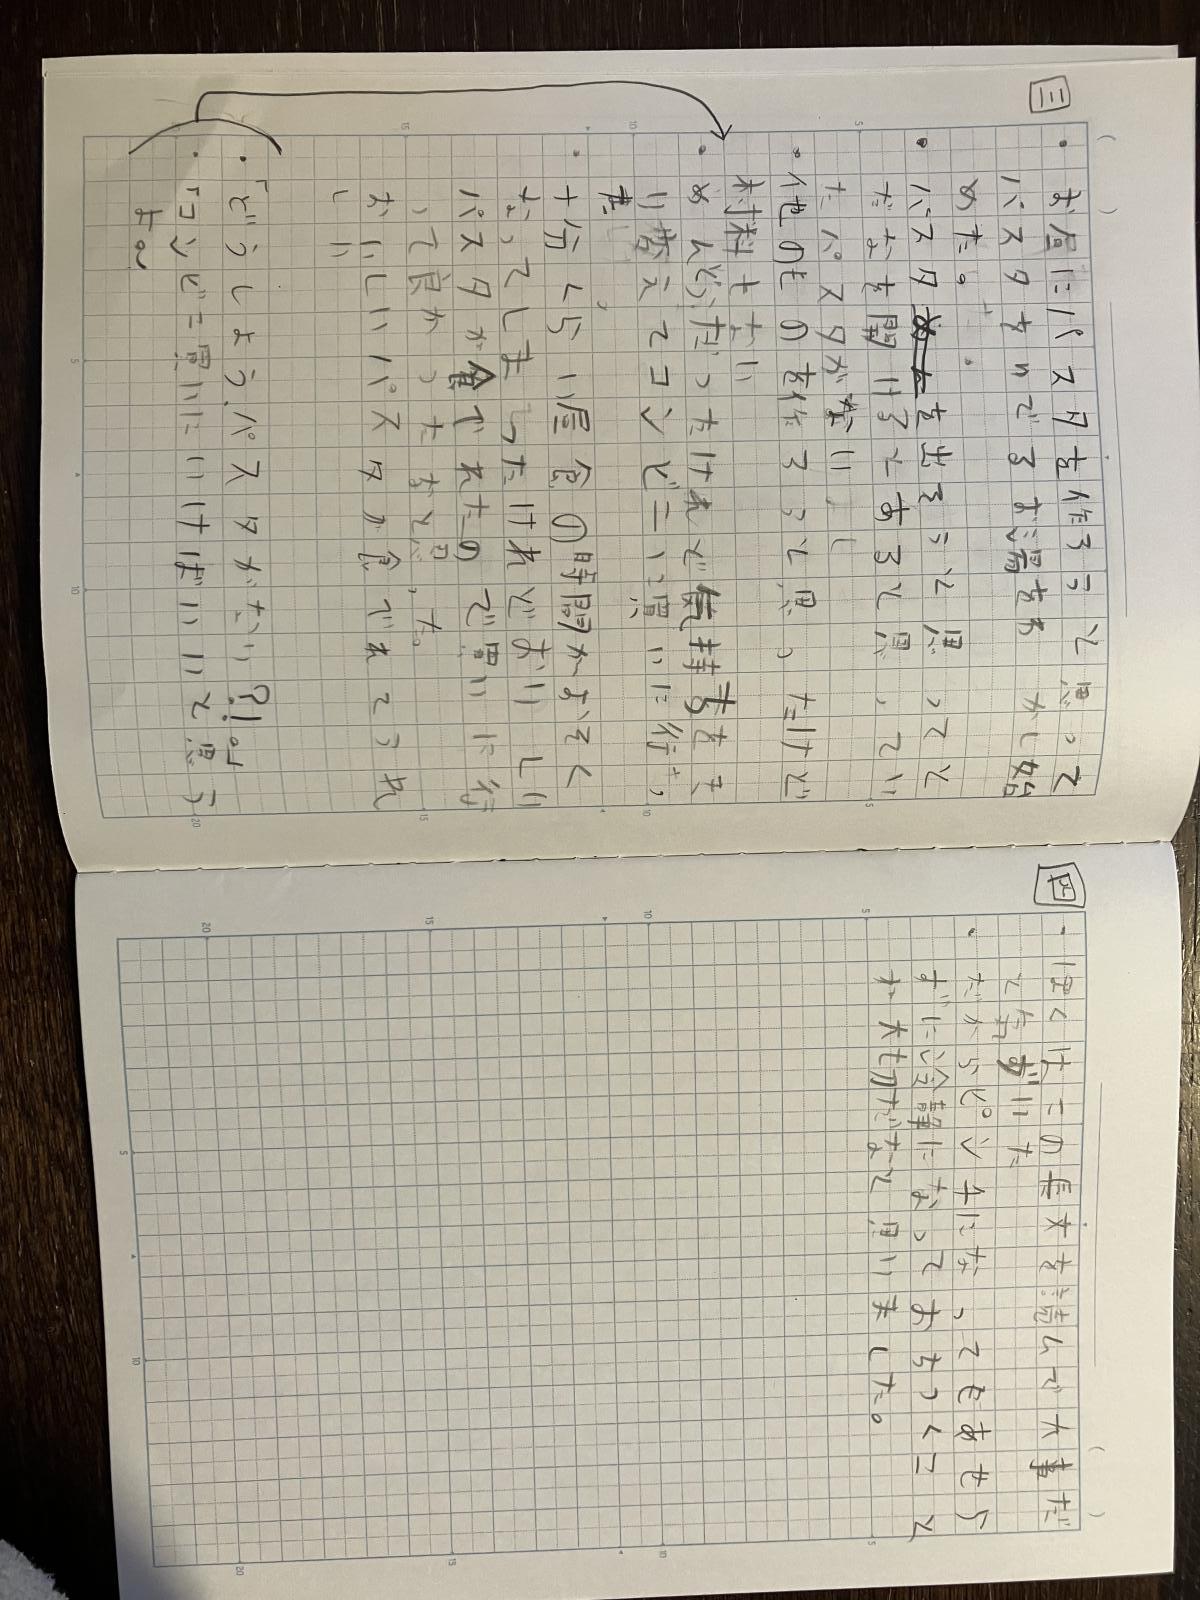 三
・お昼にパスタを作ろうと思って
パスタをゆでるお湯をわかし始
めた。
・パスタを出そうと思ってと
だなを開けるとあると思ってい
たパスタがない。
・他のものを作ろうと思ったけど
材料もない
・めんどうだったけれど気持ちをき
り替えてコンビニに買いに行っ
た。
・十分くらい昼食の時間がおそく
なってしまったけれどおいしい
パスタが食べれたので買いに行
って良かったなと思った。
おいしいパスタが食べれてうれ
しい
・「どうしよう、パスタがない?!」
・「コンビニ買いにいけばいいと思う
よ〜
四
・ぼくはこの長文を読んで大事だ
と気ずいた
・だからピンチになってもあせら
ずに冷静になっておちつくこと
が大切だなと思いました。